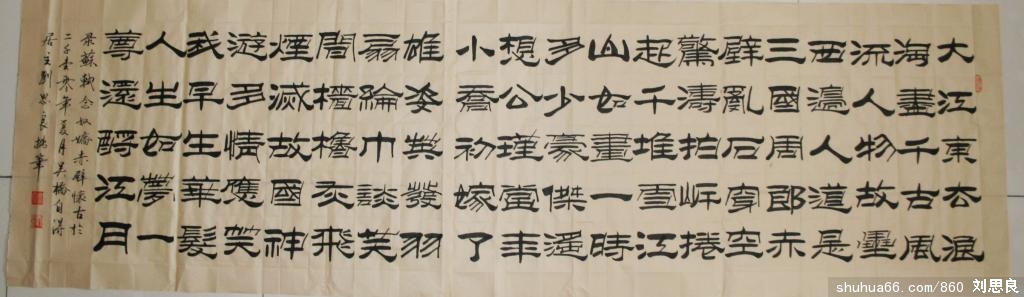 大江東去浪
淘盡千古風
流人物故壘
西邊人道是
三國周郎赤
壁亂石穿空
驚濤拍岸捲
起千堆雪江
山如畫一時
多少豪傑遥
想公瑾當年
小喬初嫁了
雄姿英發羽
扇綸巾談笑
間檣櫓灰飛
煙滅故國神
游多情應笑
我早生華髮
人生如夢一
尊還酹江月
录蘇軾念奴嬌赤壁懷古於
二千壹零年夏月吴橋自得
居主劉思良執筆
shuhua66.com/860 刘思良